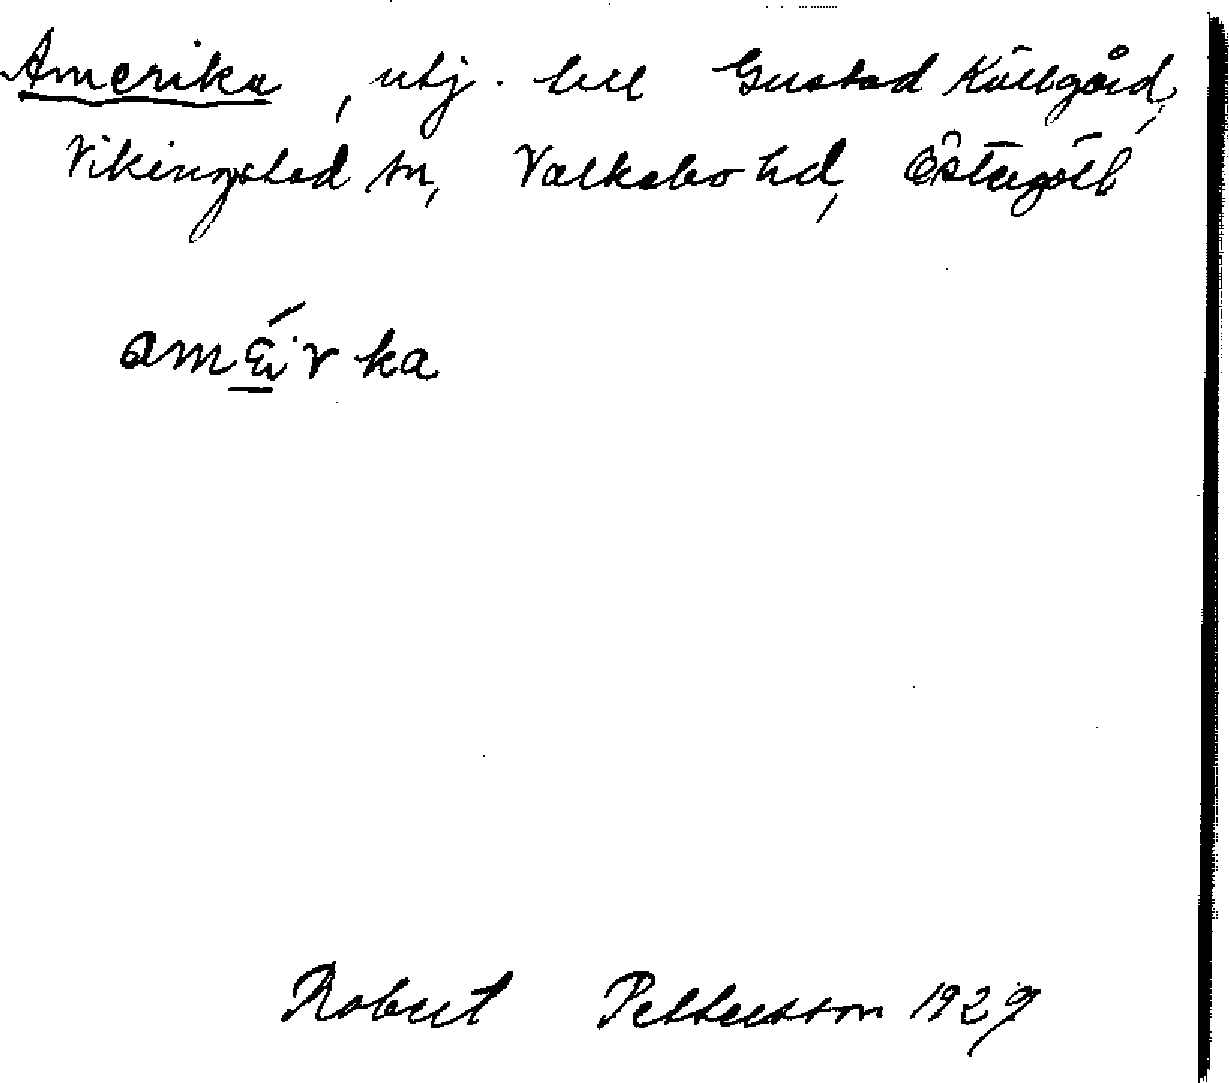 Amerika, utj. till Gustad Källgård,
Vikingstad sn, Valkebo hd, Östergötl
amɛ́rka
Robert Pettersson 1929